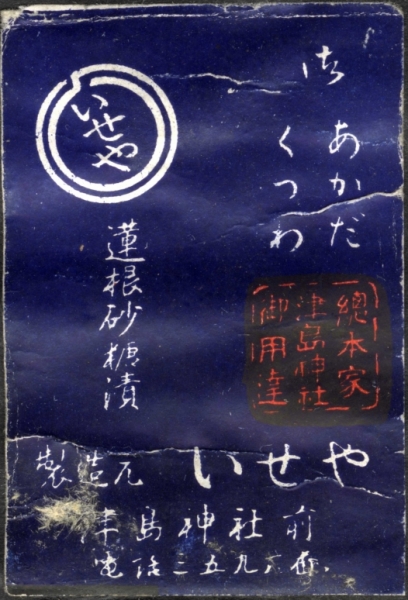 御
あかだ
くつわ
總本家
津島神社
御用達
いせや
蓮根砂糖漬
製造元 いせや
津島神社前
電話二五九六番